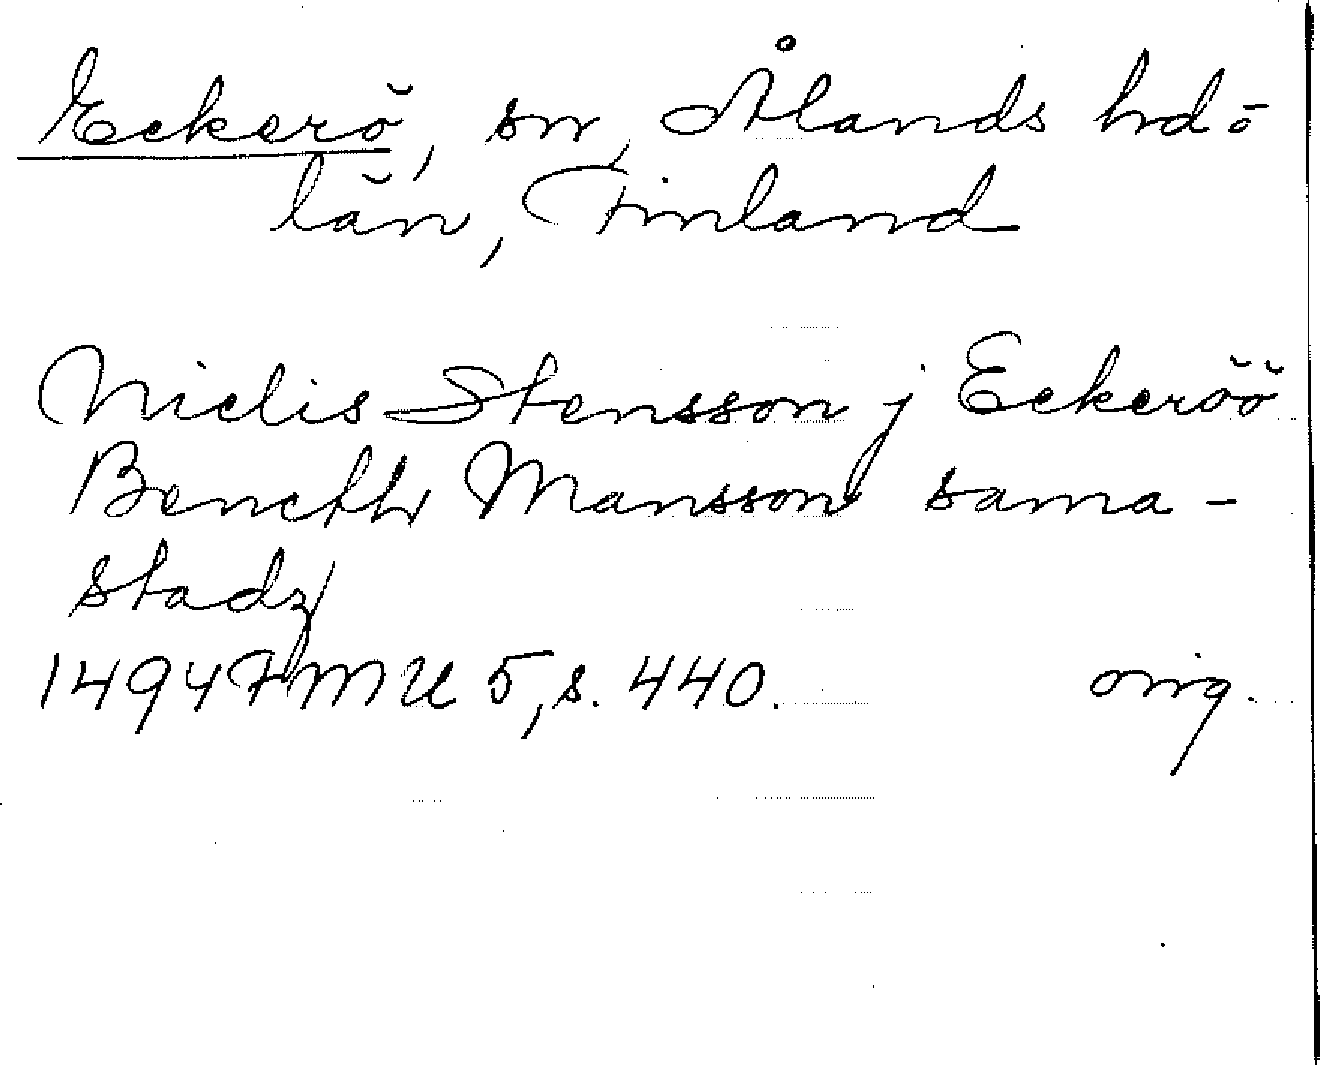 Eckerö, sn, Ålands hd o
län, Finland
Nielis Stensson j Eckeröö
Bencth Mansson sama-
stadz
1494 FMU 5, s. 440. orig.